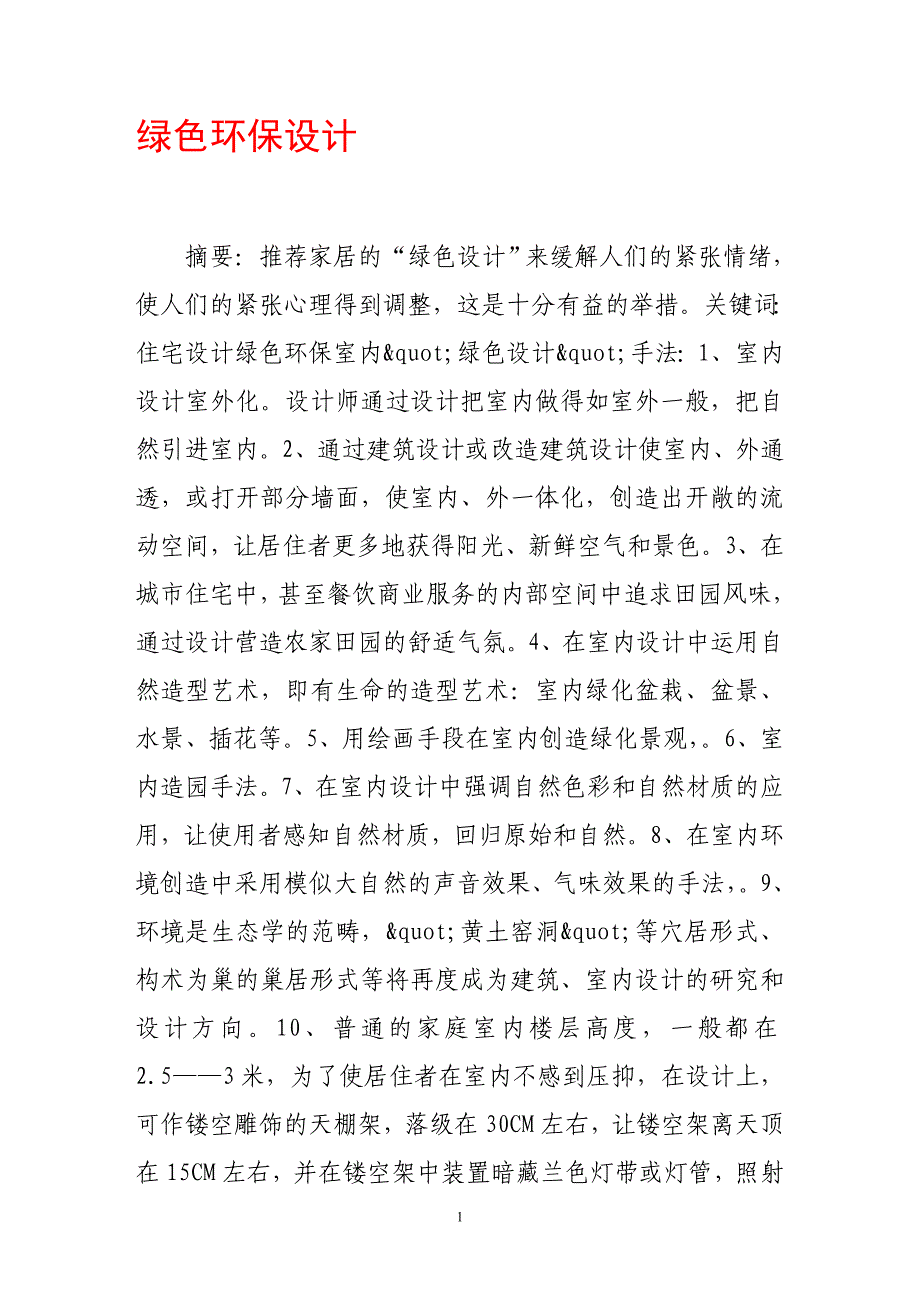 绿色环保设计
摘要：推荐家居的“绿色设计”来缓解人们的紧张情绪，
使人们的紧张心理得到调整，这是十分有益的举措。关键词：
住宅设计绿色环保室内&quot;绿色设计&quot;手法：1、室内
设计室外化。设计师通过设计把室内做得如室外一般，把自
然引进室内。2、通过建筑设计或改造建筑设计使室内、外通
透，或打开部分墙面，使室内、外一体化，创造出开敞的流
动空间，让居住者更多地获得阳光、新鲜空气和景色。3、在
城市住宅中，甚至餐饮商业服务的内部空间中追求田园风味，
通过设计营造农家田园的舒适气氛。4、在室内设计中运用自
然造型艺术，即有生命的造型艺术：室内绿化盆栽、盆景、
水景、插花等。5、用绘画手段在室内创造绿化景观，。6、室
内造园手法。7、在室内设计中强调自然色彩和自然材质的应
用，让使用者感知自然材质，回归原始和自然。8、在室内环
境创造中采用模似大自然的声音效果、气味效果的手法，。9、
环境是生态学的范畴，&quot;黄土窑洞&quot;等穴居形式、
构术为巢的巢居形式等将再度成为建筑、室内设计的研究和
设计方向。10、普通的家庭室内楼层高度，一般都在
2.5——3 米，为了使居住者在室内不感到压抑，在设计上，
可作镂空雕饰的天棚架，落级在 30CM 左右，让镂空架离天顶
在 15CM 左右，并在镂空架中装置暗藏兰色灯带或灯管，照射
1